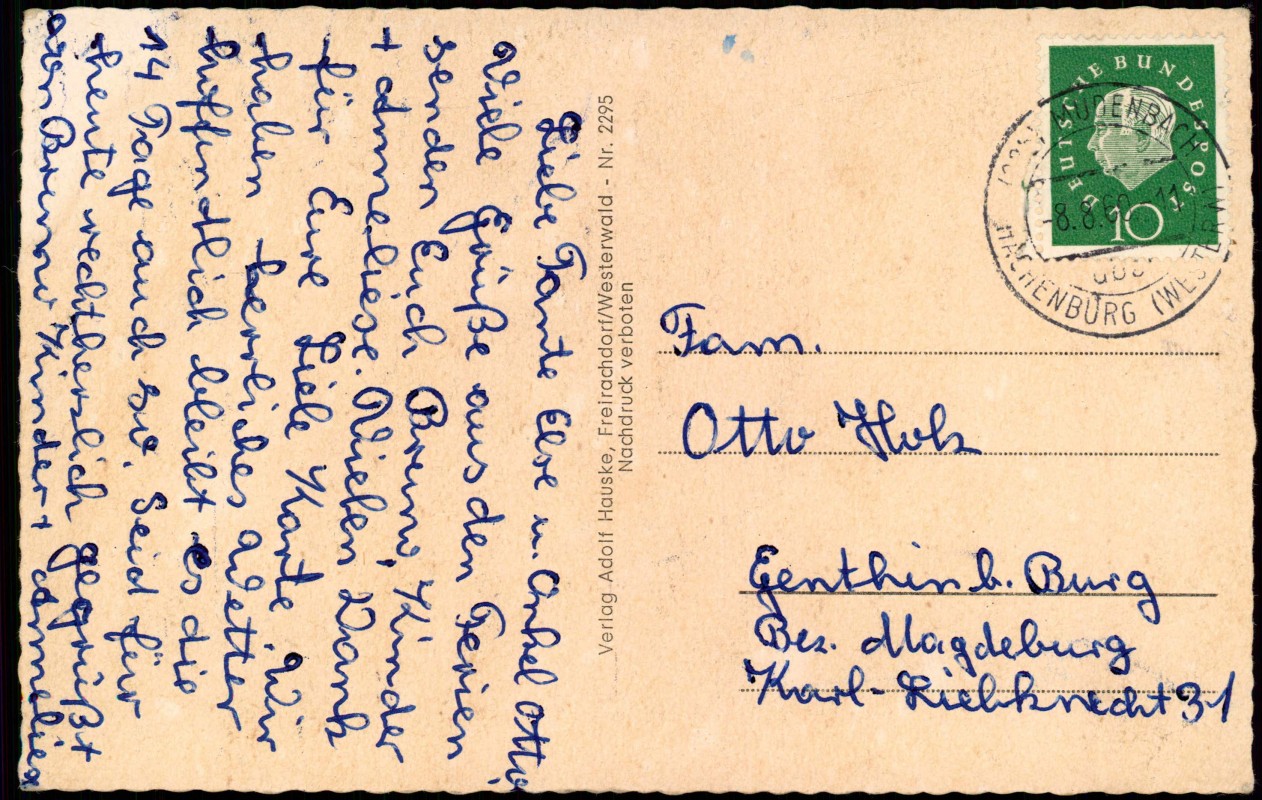 Liebe Tante Else u. Onkel Otto
Viele Grüße aus den Ferien
senden Euch Bruno, Kinder
+ Anneliese. Vielen Dank
für Eure Liebe Karte. Wir
haben herrliches Wetter
hoffendlich bleibt es die
14 Tage auch so. Seid für
heute recht herzlich gegrüßt
von Bruno Kinder + Anneliese
Verlag Adolf Hauske, Freirachdorf/Westerwald - Nr. 2295
Nachdruck verboten
DEUTSCHE BUNDESPOST
10
MUDENBACH
-8.8.60 -11
HACHENBURG (WESTERW)
Fam.
Otto Holz
Genthin b. Burg
Bez. Magdeburg
Karl-Liebknecht 31